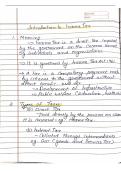 Introduction to Income Tax
1. Meaning
→ Income Tax is a direct tax levied
by the government on the income earned
by individuals and organisations.
→ It is governed by Income Tax Act 1961
→ A tax is a compulsory payment made
by citizens to the government without
direct benefit
→ Development of Infrastructure
→ Public welfare
2. Types of Taxes
(i) Direct Tax
→ Paid directly by the person on whom
it is imposed. eg: Income Tax
(ii) Indirect Tax
→ Collected through intermediaries
eg: GST (Goods and Services Tax)